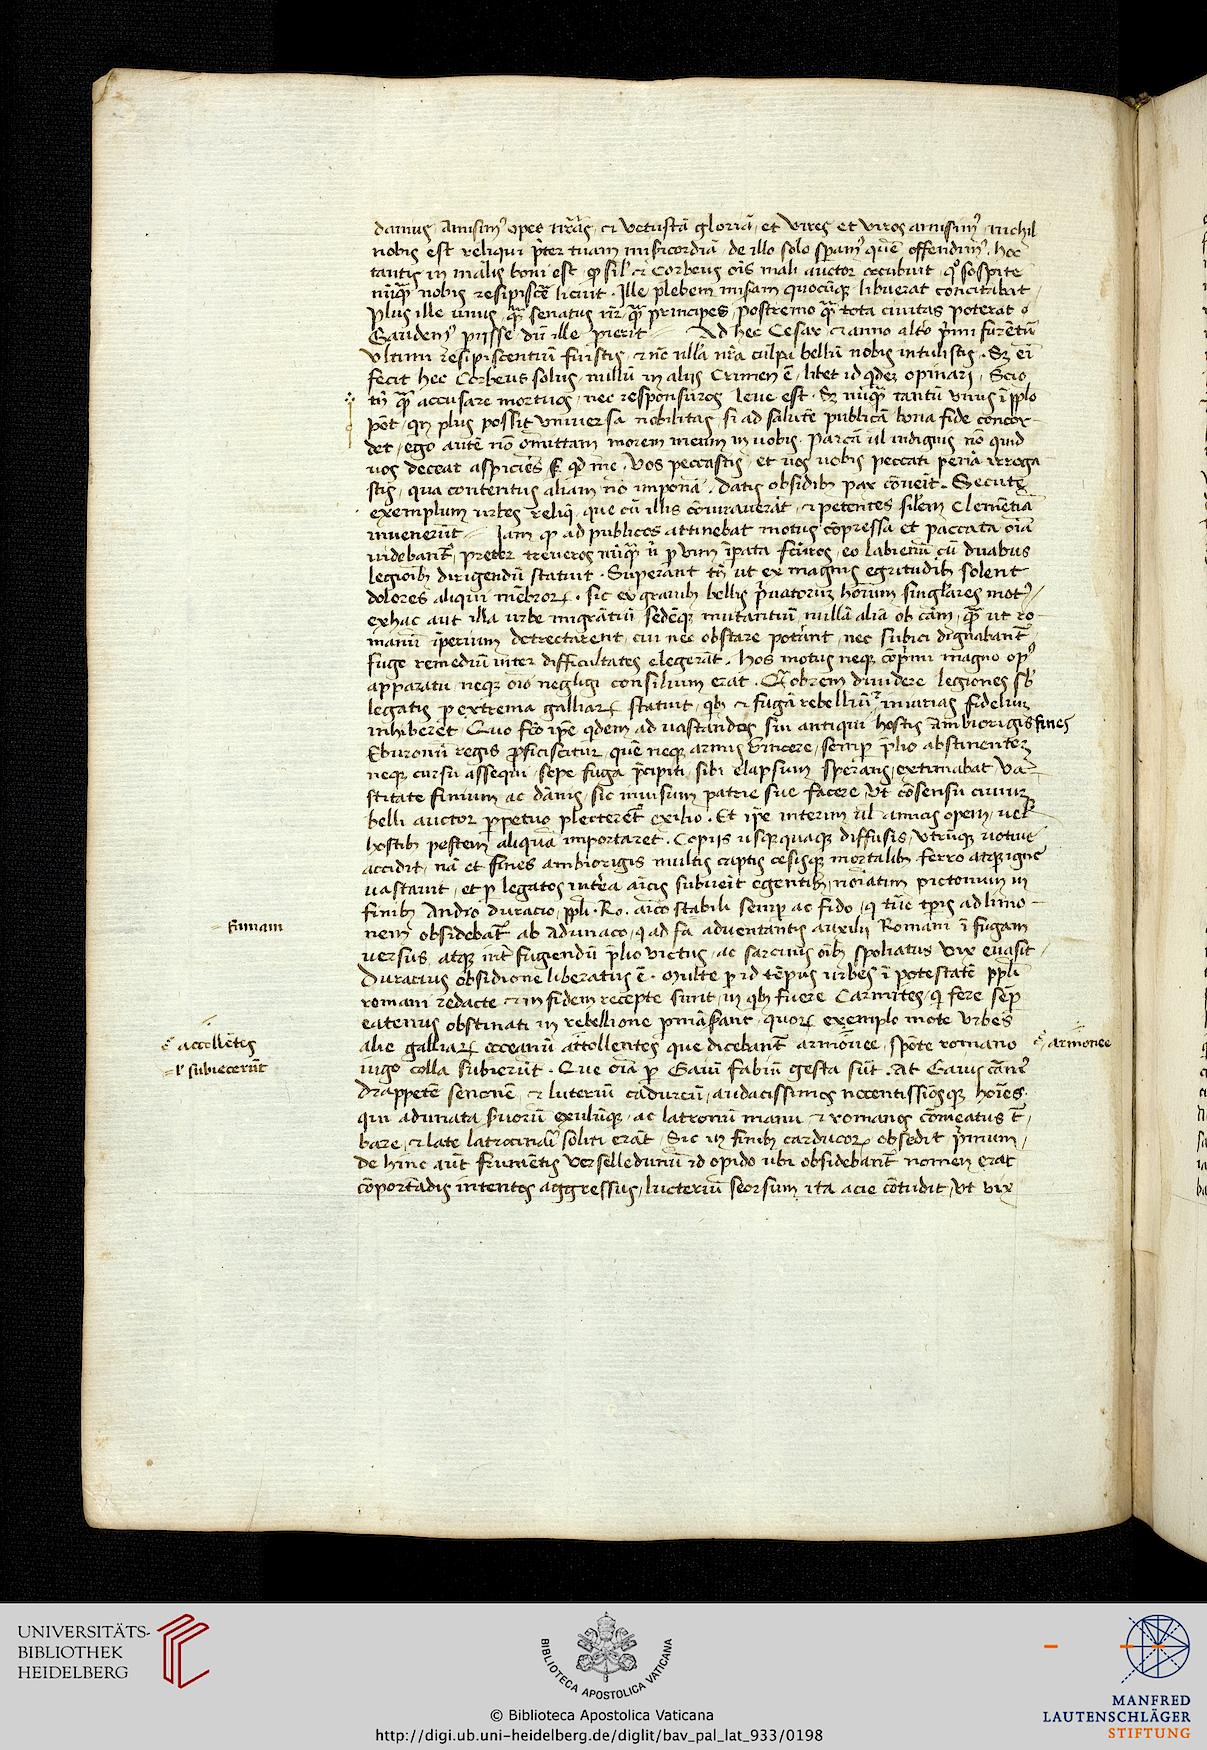 damus, Amisim9 opes nr̄as, et vetustā gloriā, et vires et viros amisim9, nichil
nobis est reliqui p̄ter tuam misericordiā, de illo solo sp̄am9 quē offendim9. hoc
tantis in malis boni est, q̨ sil' et Corbeus oīs mali auctor occubuit, q° sospite
nūq̄ nobis resipiscē licuit. Ille plebem misam quocūq libuerat concitabat,
plus ille unus, q̄ senatus nr̄, q̄ principes, postremo q̄ tota civitas poterat
Gaudem9 piisse dū ille pierit Ad hec Cesar, et anno alto p̄mi furētiū
ultimi resipiscentiū fuistis, et nc̄ ulla nr̄a culpa bellū nobis intulistis. Sz eī
fecit hec Corbeus solus, nullū in aliis Crimen ē, libet id qdez opinari, Scio
tn̄ q̄ accusare mortuos, nec responsuros leve est. Sz nūq̄ tantū unus ī pplo
pōt, qn plus possit universa nobilitas, si ad salutē publicā bona fide concor-
det, ego autē nō omittam morem meum in vobis. parcā ul indignis nō quid
vos deceat aspiciēs s qd me. Vos peccastis, et vos vobis peccati penā irroga
stis, qua contentus aliam nō imponā. Datis obsidib pax cōveīt. Secute
exemplum urbes reliq, que cū illis cōiuraverāt, et petentes sil'em Clemētiā
invenerūt Iam q̨ ad publicos attinebat motus cōpressa et paccata oīa
videbant, preter treveros nūq̄ n p vim īpata fcuros, eo labienū cū duabus
legioīb dirigendū statuit. Superāt tn̄ ut ex magnis egritudib solent
dolores aliqui mēbror. sic ex gravib bellis p̄vatorum hoīum singlares mot9,
ex hac aut illa urbe migrātiū sedēq mutantiū nullā aliā ob cām, q̄ ut ro-
manū īperium detrectarent, cui nec obstare potāt, nec subici dignabant
fuge remediū inter difficultates elegerāt. Hos motus neq cōp̄mi magno op9
apparatu, neq oīo negligi consilium erat. Qobrem dividere legiones sb
legatis p extrema galliar statuit, qb et fugā rebelliū et iniurias fidelium
inhiberet. Quo fcō ipe qdem ad vastandos sui antiqui hostis Ambiorigis fines
Eburonū regis pficiscitur, quē neq armis vincere, semp p̄lio abstinentem
neq cursu assequi, sepe fuga p̄cipiti, sibi elapsum sperans, extimabat, va-
stitate finium ac dānis, sic invisum patrie sue facere, Ut cōsensu civium
belli auctor ppetuo plecteret exilio. Et ipe interim ul amicis opem, vel
hostib pestem aliquā importaret. Copiis usqquaq diffusis, utrūq voti
accidit, nā et fines ambiorigis multis captis cesisq mortalib ferro atq igne
vastavit, et p legatos intea aīcis subveīt egentib, noīatim pictonum in
finib Andro duracio, ppli. Ro. aīco stabili semp ac fido, q tūc tp̄is ad limo-
nem obsidebat ab Adunaco, q ad fā adventantis auxilii Romani ī fugam
versus, atq int fugiendū p̄lio victus, ac sarcinis oīb spoliatus vix evasit,
Duracius obsidione liberatus ē. Multe p id tēpus urbes ī potestatē ppli
romani redacte et in fidem recepte sunt, in qb fuere Carnutes, q fere sēp
eatenus obstinati in rebellione pmāserant, quor exemplo mote urbes
alie galliar occeanū attollentes que dicebant armonee, spōte romano
iugo colla subierūt. Que oīa p Gaiū fabiū gesta sūt. At Gaius canine
Drappetē senonē, et luteriū cadurcū, audacissimos nocentissiosq hoīes.
qui adunata suorū exulūq, ac latronū manu et romanos cōmeatus t
bare, et late latrocinari soliti erāt, Sic in finib carducor obsedit p̄mum,
de hinc aut frumētis Verselledunū id opido ubi obsidebant nomen erat
cōportādis intentos aggressus, lucteriū seorsum ita acie cōtudit, ut vix
famam
c' accollētes
l' subiecerūt
c' armonee
UNIVERSITÄTS-
BIBLIOTHEK
HEIDELBERG
BIBLIOTECA APOSTOLICA VATICANA
© Biblioteca Apostolica Vaticana
http://digi.ub.uni-heidelberg.de/diglit/bav_pal_lat_933/0198
MANFRED
LAUTENSCHLÄGER
STIFTUNG